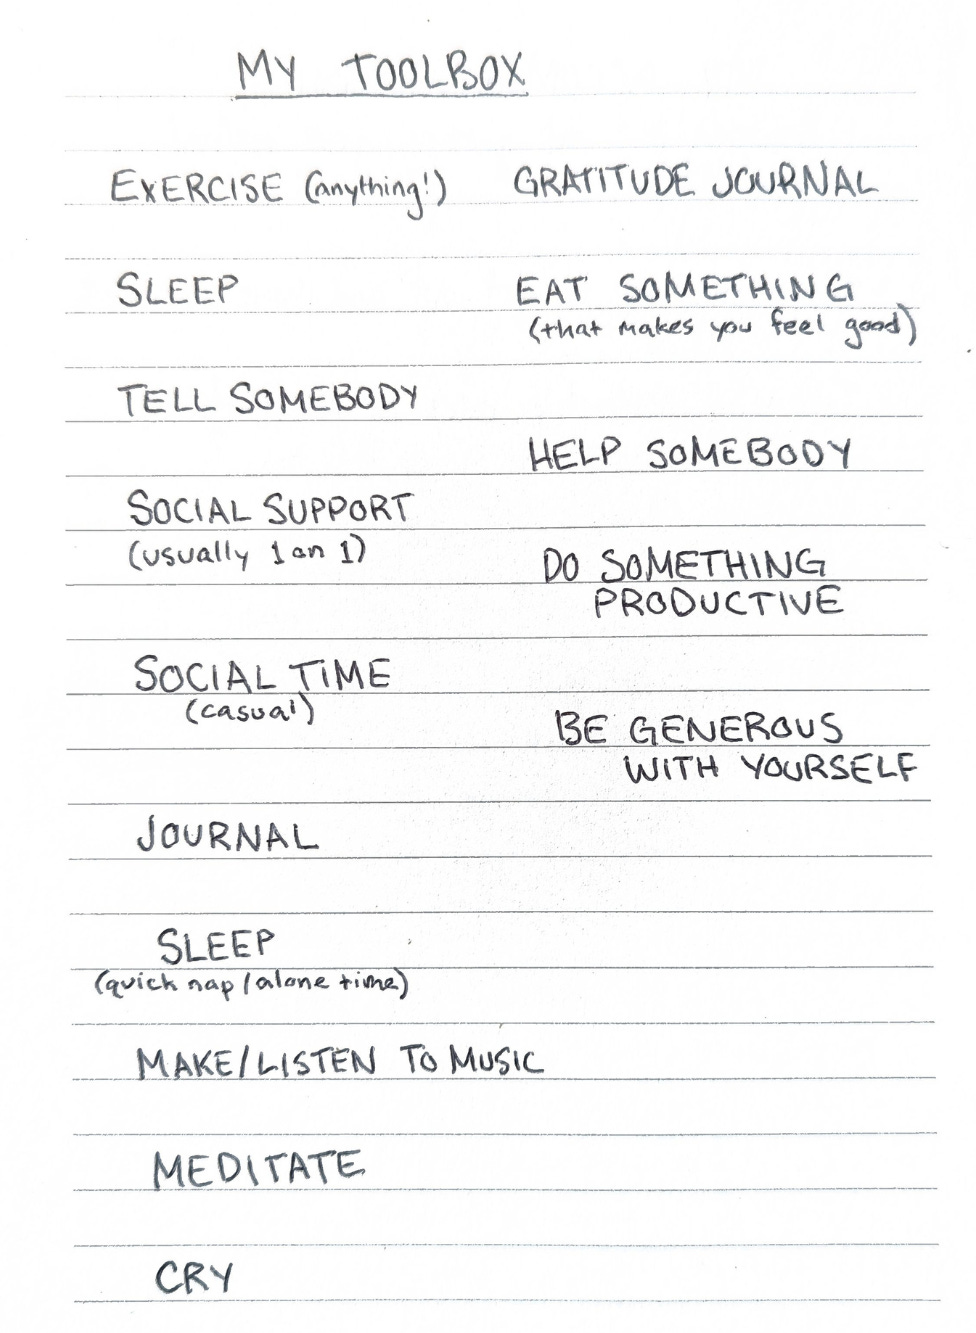 MY TOOLBOX
EXERCISE (anything!)
SLEEP
TELL SOMEBODY
SOCIAL SUPPORT
(usually 1 on 1)
SOCIAL TIME
(casual)
JOURNAL
SLEEP
(quick nap/alone time)
MAKE/LISTEN TO MUSIC
MEDITATE
CRY
GRATITUDE JOURNAL
EAT SOMETHING
(that makes you feel good)
HELP SOMEBODY
DO SOMETHING
PRODUCTIVE
BE GENEROUS
WITH YOURSELF